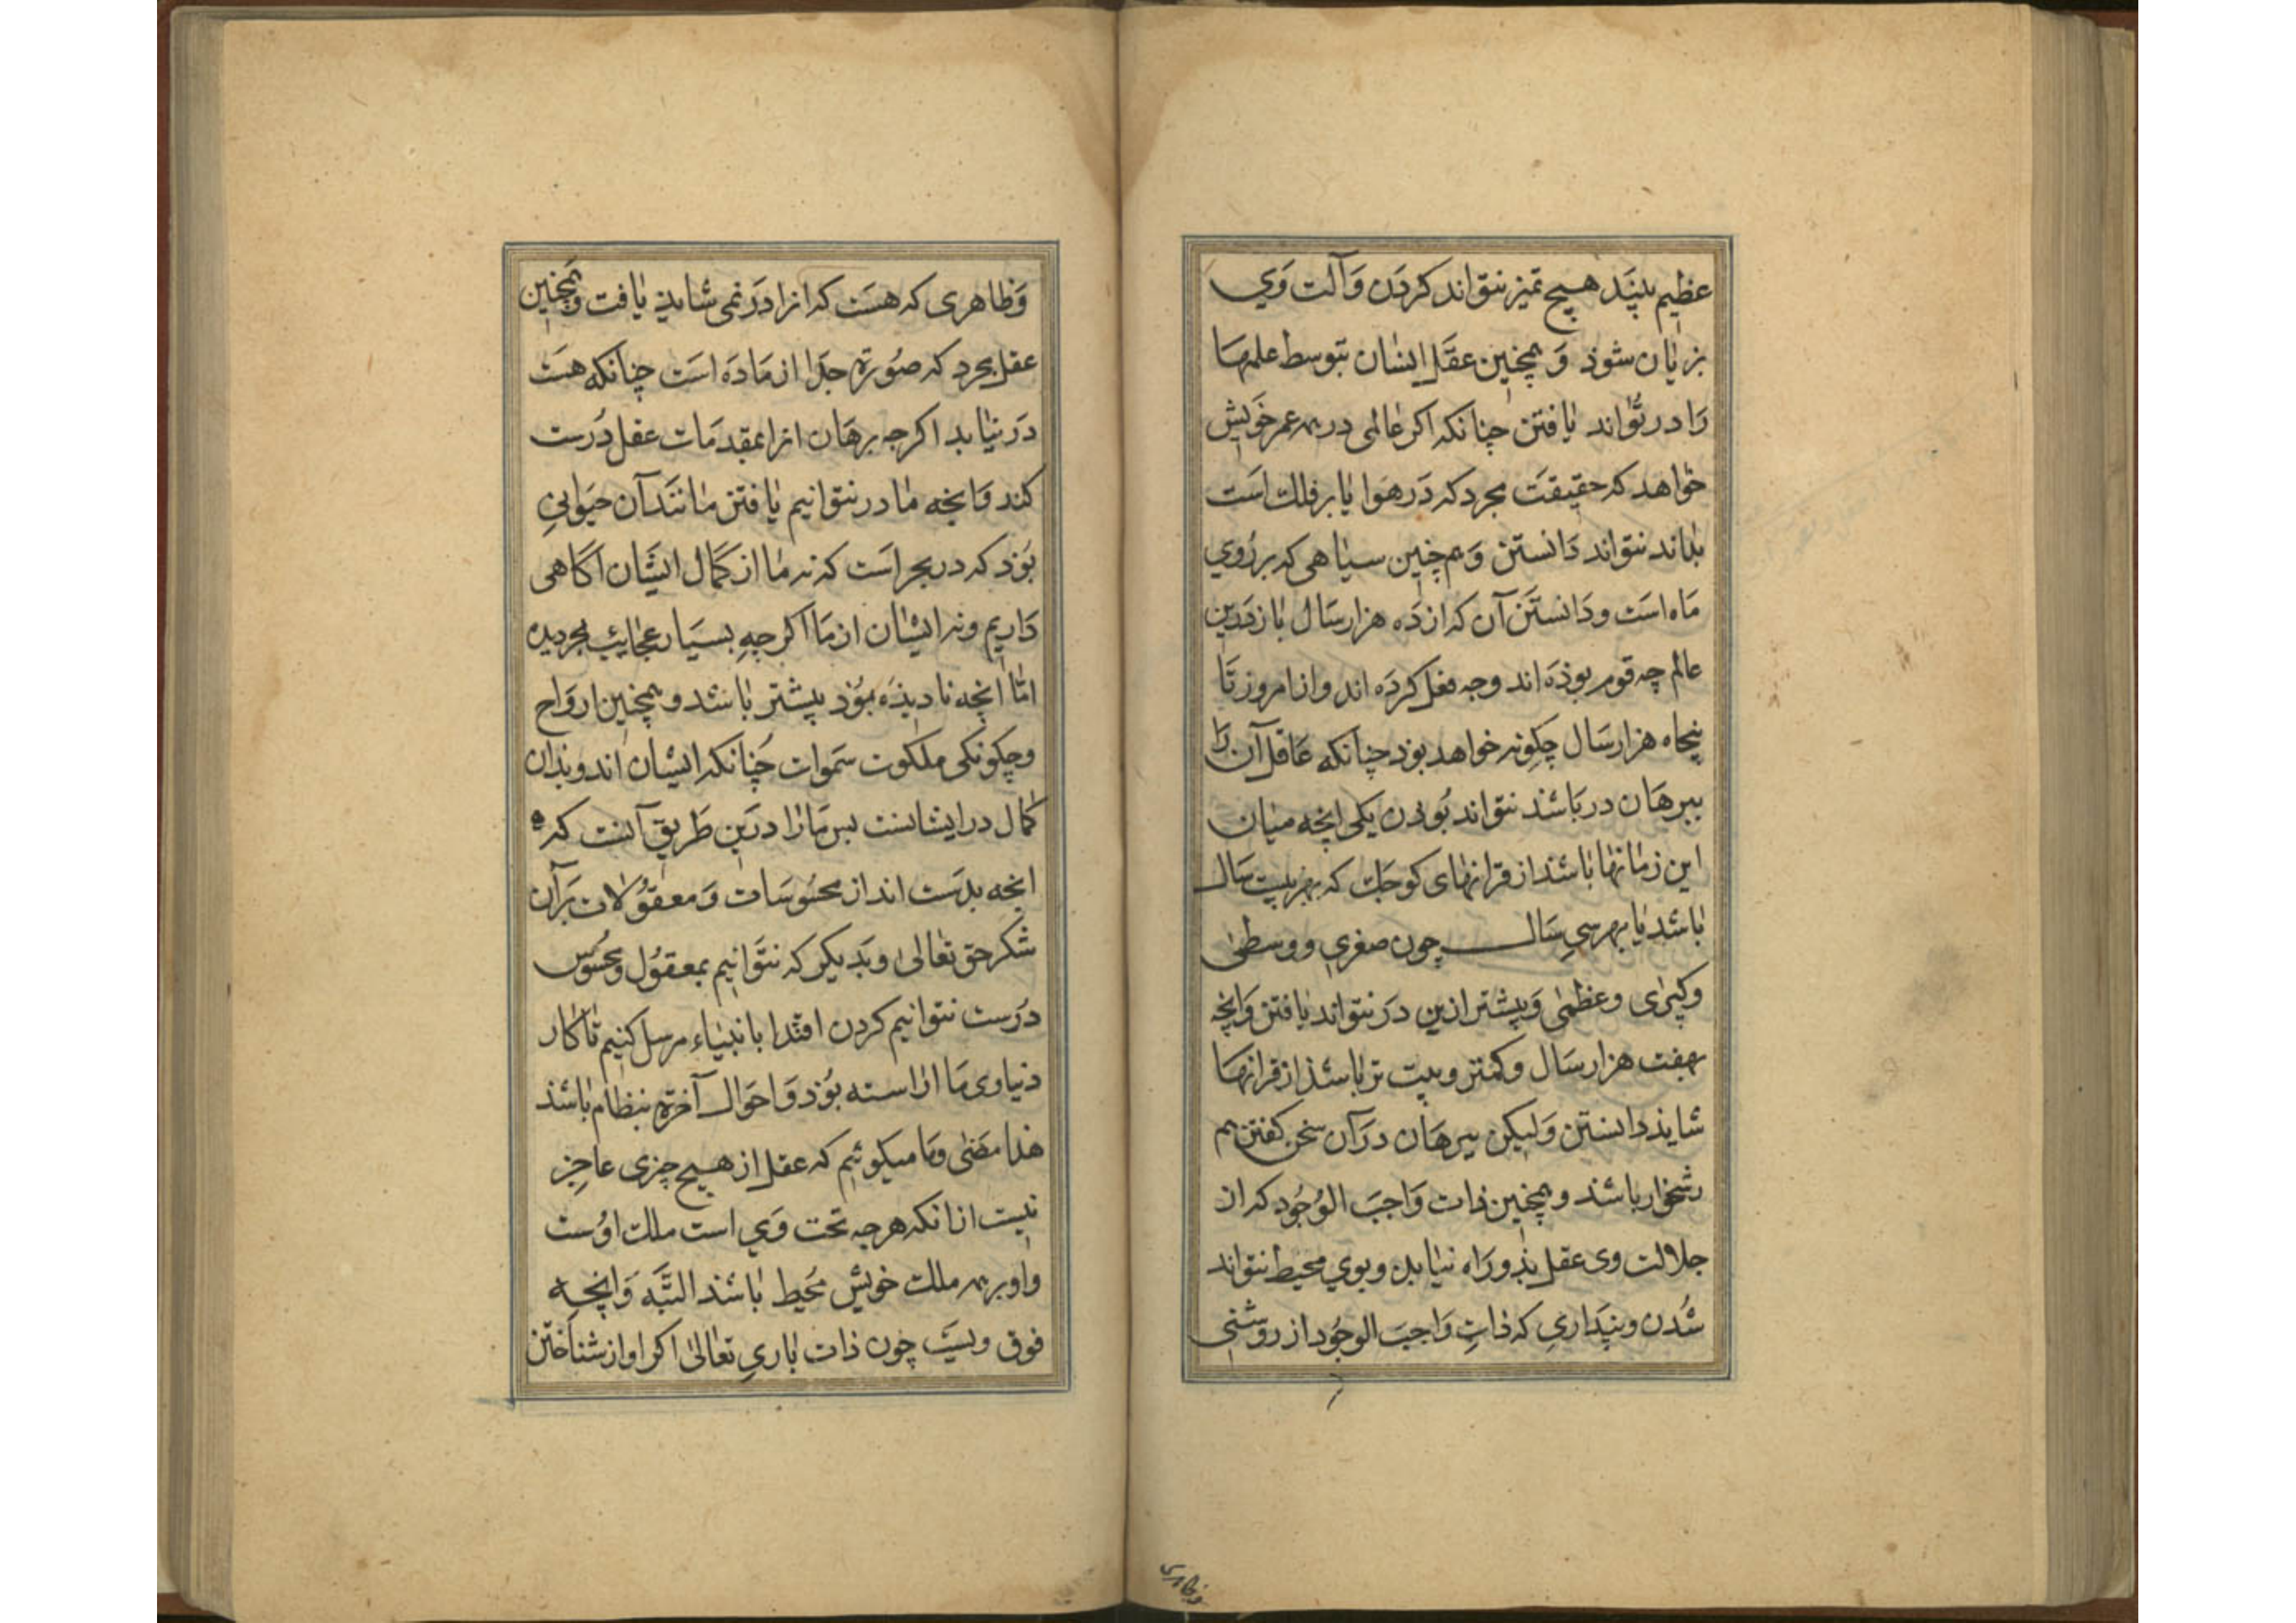 عظیم بیند هیچ تمیز نتواند کردن و آلت وی
بزیان شوذ و همچنین عقل ایشان بتوسط علمها
را در تواند یافتن چنانکه اکر عالمی در همه عمر خویش
خواهد که حقیقت مجرد که در هوا یا بر فلک است
بداند نتواند دانستن و هم چنین سیاهی که بر روی
ماه است و دانستن آن که از ده هزار سال باز درین
عالم چه قوم بوذه اند وجه فعل کرده اند و از امروز تا
پنجاه هزار سال چکونه خواهد بوذ چنانکه عاقل آن را
ببرهان در باشذ نتواند بوذن یکی انچه میان
این زمانها باشذ از قرانهای کوجک که بهر بیست سال
باشذ یا بهر سی سال چون صغری و وسطی
و کبری و عظمی و پیشتر ازین در نتواند یافتن و انچه
بهفت هزار سال و کمتر و بیت تر باشذ از قرانها
شایذ دانستن ولیکن ببرهان در آن سخن کفتن هم
دشخوار باشذ و همچنین ذات واجب الوجود که از
جلالت وی عقل بذو راه نیابد و بوی محیط نتواند
شدن و پنداری که ذات واجب الوجود از روشنی
و ظاهری که هست که انرا در نمی شاید یافت و همچنین
عقل مجرد که صورة جدا از ماده است چنانکه هست
در نیابد اکرجه برهان انرا بمقدمات عقل درست
کند و انچه ما در نتوانیم یافتن مانند آن حیوانی
بوذ که در بحر است که نه ما از کمال ایشان آکاهی
داریم و نه ایشان از ما اکر چه بسیار عجایب بحر دیده
اما انچه نادیذه بوذ پیشتر باشد و همچنین ارواح
و چکونکی ملکوت سموات چنانکه ایشان اند و بذان
کمال در ایشانست پس ما را درین طریق آنست که
انچه بدست اند از محسوسات و معقولات بر آن
شکر حق تعالی و بدیکر که نتوانیم بمعقول و محسوس
درست نتوانیم کردن اقتدا بانبیاء مرسل کنیم تا کار
دنیاوی ما اراسته بوذ و احوال آخرة بنظام باشذ
هذا مضی و ما میکوئیم که عقل از هیچ چیزی عاجز
نیست از انکه هرجه تحت وی است ملک اوست
و او بر همه ملک خویش محیط باشذ البته و انچه
فوق ویست چون ذات باری تعالی اکر او از شناختن